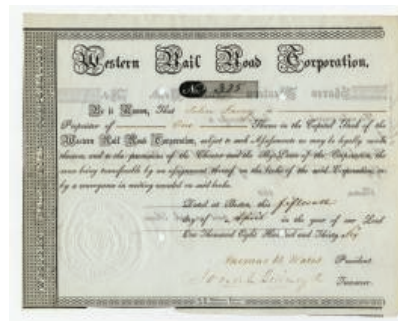 Western Rail Road Corporation.
No. 335
Be it Known, That
Proprietor of One Share in the Capital Stock of the
Western Rail Road Corporation, subject to such Assessments as may be legally made
thereon, and to the provisions of the Charter and the Bye-Laws of the Corporation, the
same being transferable by an assignment thereof in the books of the said Corporation, or
by a conveyance in writing recorded in said books.
Dated at Boston this fifteenth
day of April in the year of our Lord
One Thousand Eight Hundred and Thirty Six
Thomas B. Wales President
Josiah Quincy Jr Treasurer